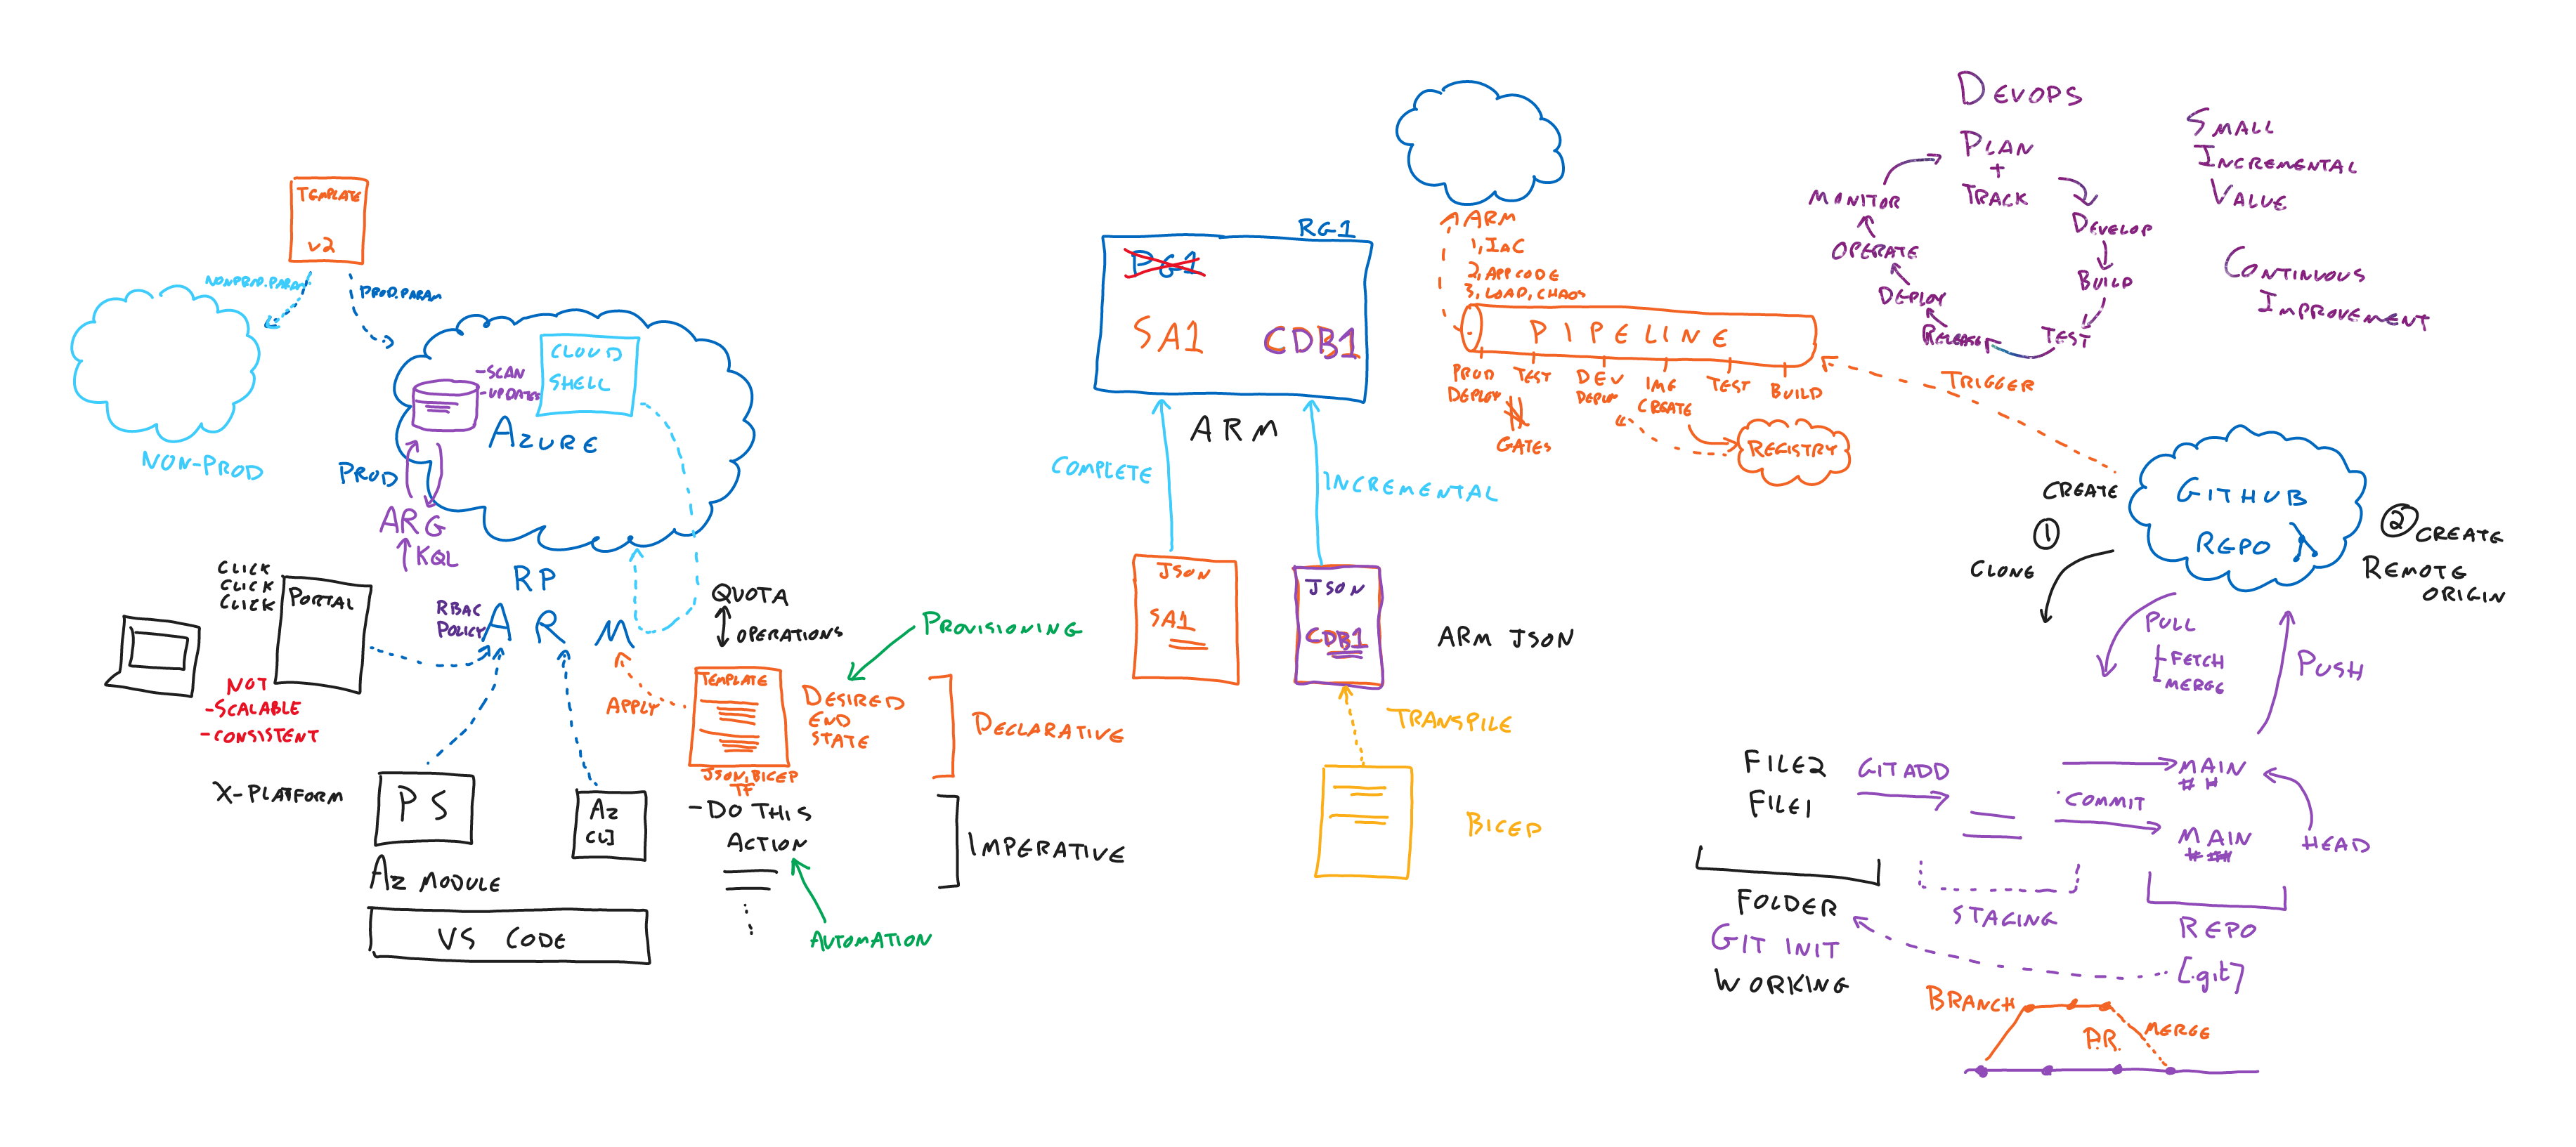 TEMPLATE
V2
NONPROD.PARAM
PROD.PARAM
NON-PROD
CLOUD
SHELL
-SCAN
-UPDATES
AZURE
PROD
ARG
KQL
RP
RBAC
POLICY
ARM
CLICK
CLICK
CLICK
PORTAL
NOT
-SCALABLE
-CONSISTENT
X-PLATFORM
PS
AZ MODULE
AZ
CLI
VS CODE
QUOTA
OPERATIONS
PROVISIONING
APPLY
TEMPLATE
JSON, BICEP
TF
DESIRED
END
STATE
DECLARATIVE
-DO THIS
ACTION
IMPERATIVE
AUTOMATION
RG1
PG1
SA1
CDB1
ARM
COMPLETE
INCREMENTAL
JSON
SA1
JSON
CDB1
ARM JSON
TRANSPILE
BICEP
ARM
1, IAC
2, APP CODE
3, LOAD, CHAOS
PIPELINE
PROD
DEPLOY
TEST
DEV
DEPLOY
IMG
CREATE
TEST
BUILD
GATES
REGISTRY
TRIGGER
DEVOPS
PLAN
+
TRACK
DEVELOP
BUILD
TEST
RELEASE
DEPLOY
OPERATE
MONITOR
SMALL
INCREMENTAL
VALUE
CONTINUOUS
IMPROVEMENT
GITHUB
REPO
CREATE
1
CLONE
2 CREATE
REMOTE
ORIGIN
PULL
-FETCH
-MERGE
PUSH
FILE2
FILE1
GIT ADD
COMMIT
MAIN
##
MAIN
HEAD
FOLDER
GIT INIT
WORKING
STAGING
REPO
[.git]
BRANCH
P.R.
MERGE